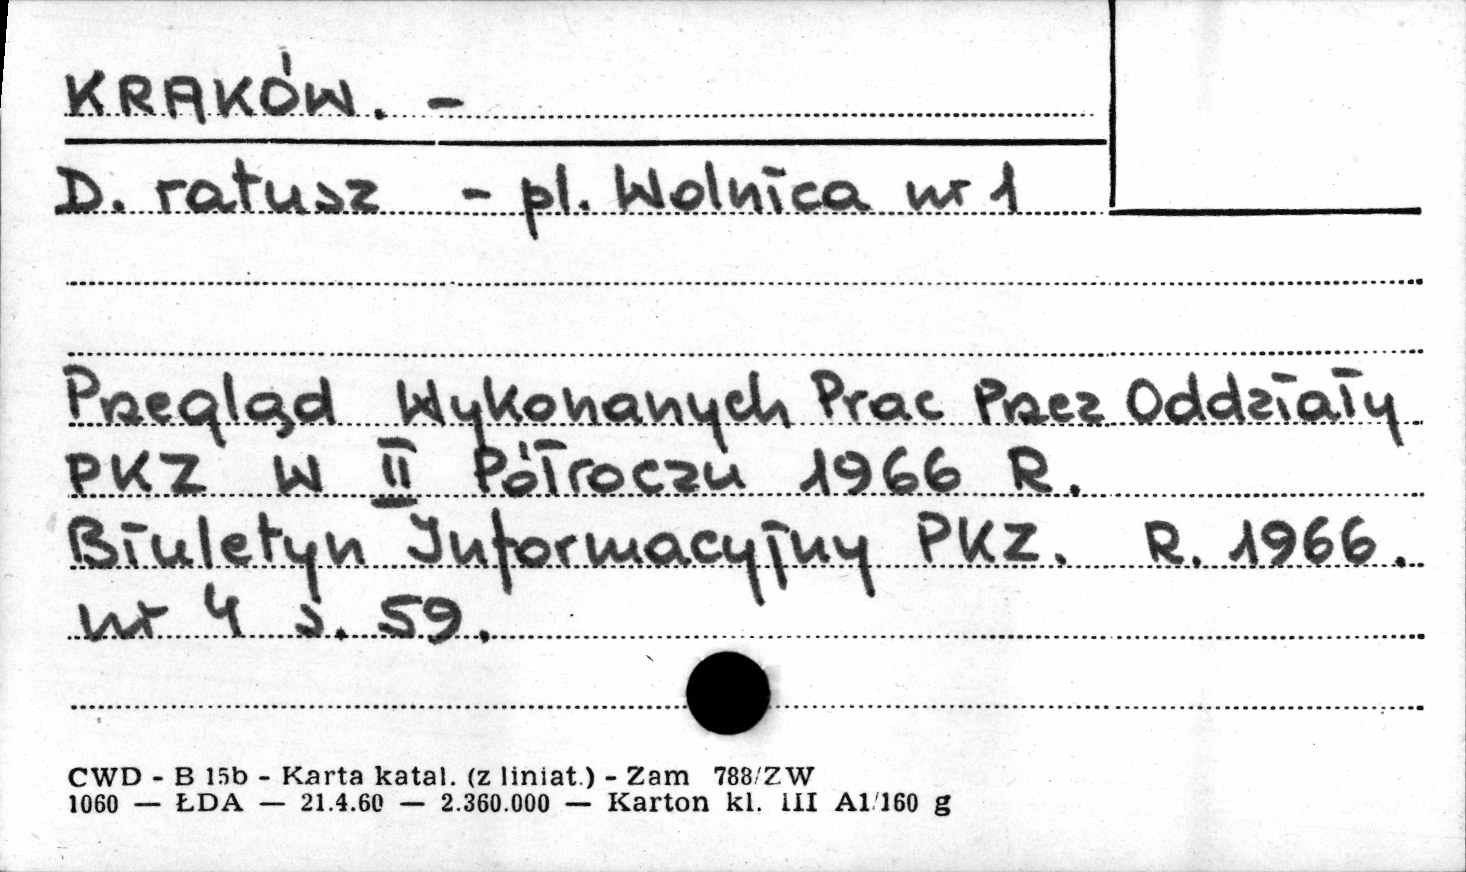 KRAKÓW. -
D. ratusz - pl. Wolnica nr 1
Przegląd Wykonanych Prac Przez Oddziały
PKZ W II Półroczu 1966 R.
Biuletyn Informacyjny PKZ. R. 1966.
nr 4 s. 59.
CWD - B 15b - Karta katal. (z liniat.) - Zam 788/ZW
1060 — ŁDA — 21.4.60 — 2.360.000 — Karton kl. III A1/160 g